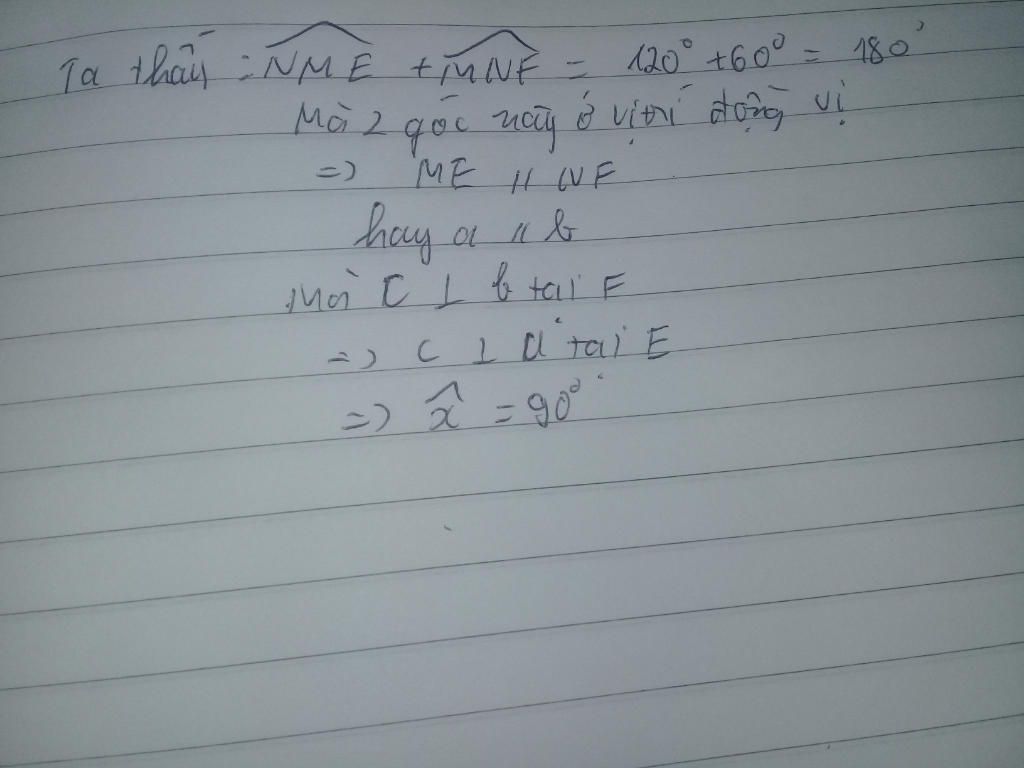 Ta thấy : \widehat{NME} + \widehat{MNF} = 120° + 60° = 180°
Mà 2 góc này ở vị trí đồng vị
=> ME // NF
hay a // b
Mà C ⊥ b tại F
=> C ⊥ a tại E
=> \widehat{x} = 90°